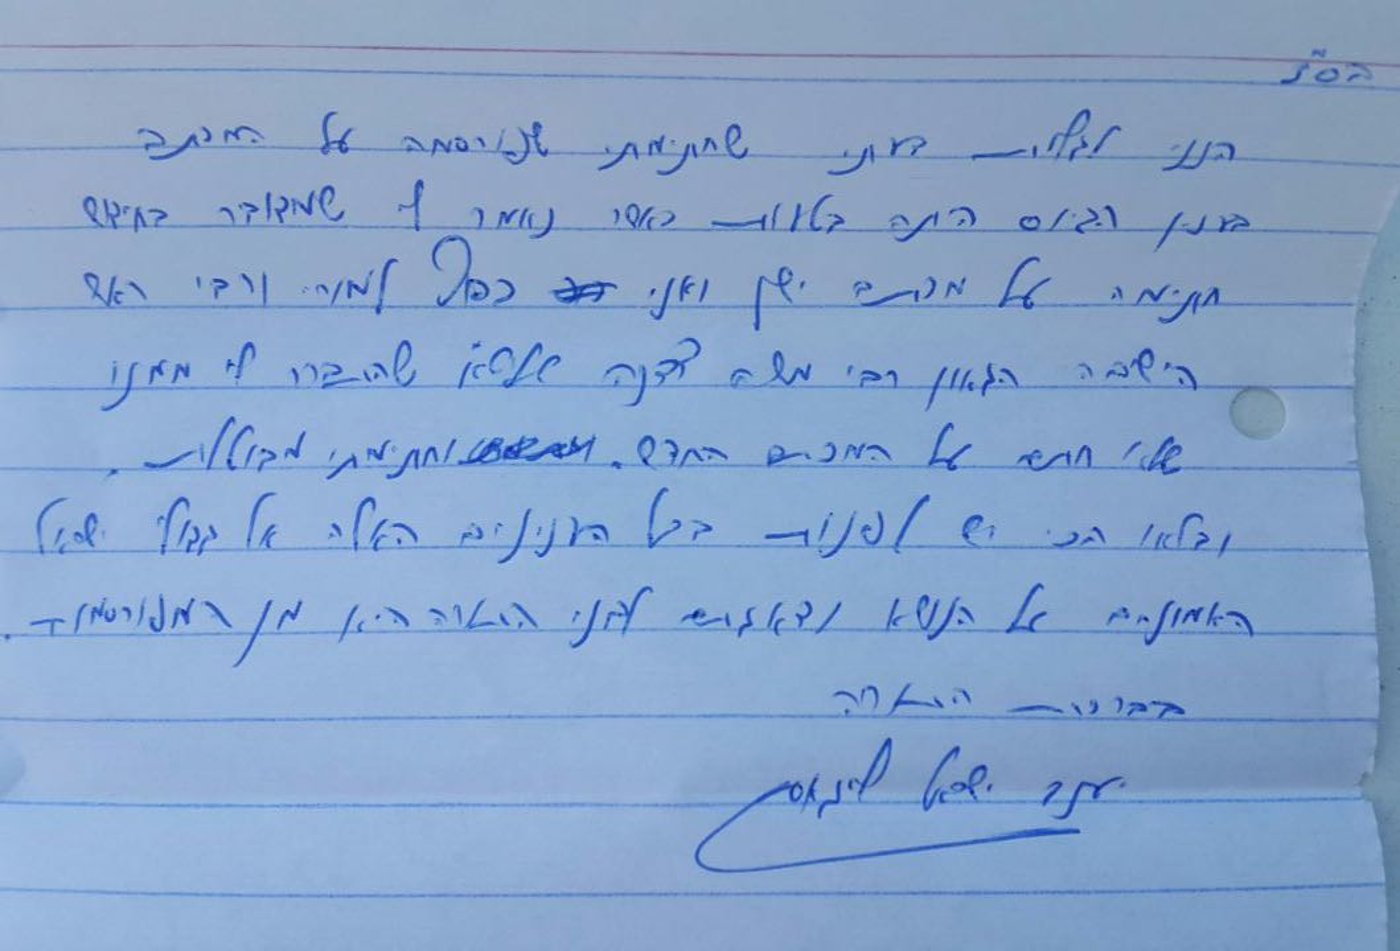 בס"ד
הנני לגלות דעתי שחתימתי שפורסמה על המכתב
בענין הגיוס היתה בטעות כאשר נאמר לי שמדובר בחידוש
חתימה על מכתב ישן ואני כפוף למורי ורבי ראש
הישיבה הגאון רבי משה צדקה שליט"א שהוברר לי ממנו
שאינו חותם על המכתב החדש. וחתימתי מבוטלת.
ובלאו הכי יש לפנות בכל הענינים האלה אל גדולי ישראל
האמונים על הנושא ודאגתם לבני התורה היא מן המפורסמות.
בברכת התורה
יעקב ישראל